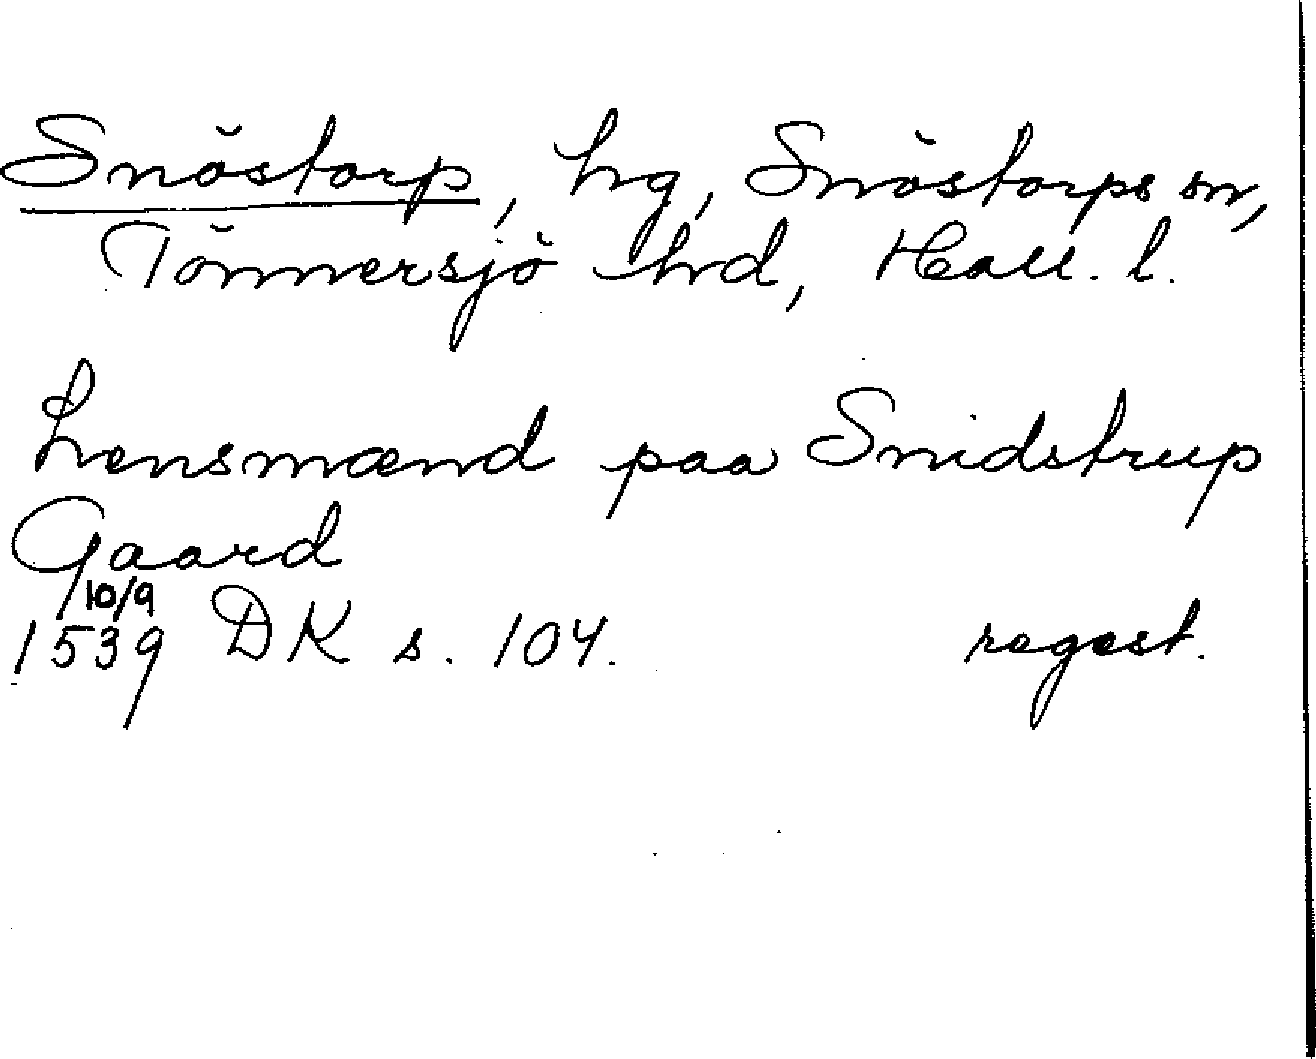 Snöstorp, hg, Snöstorps sn,
Tönnersjö hrd, Hall. l.
Lensmænd paa Snidstrup
Gaard
10/9
1539 DK s. 104. regest.